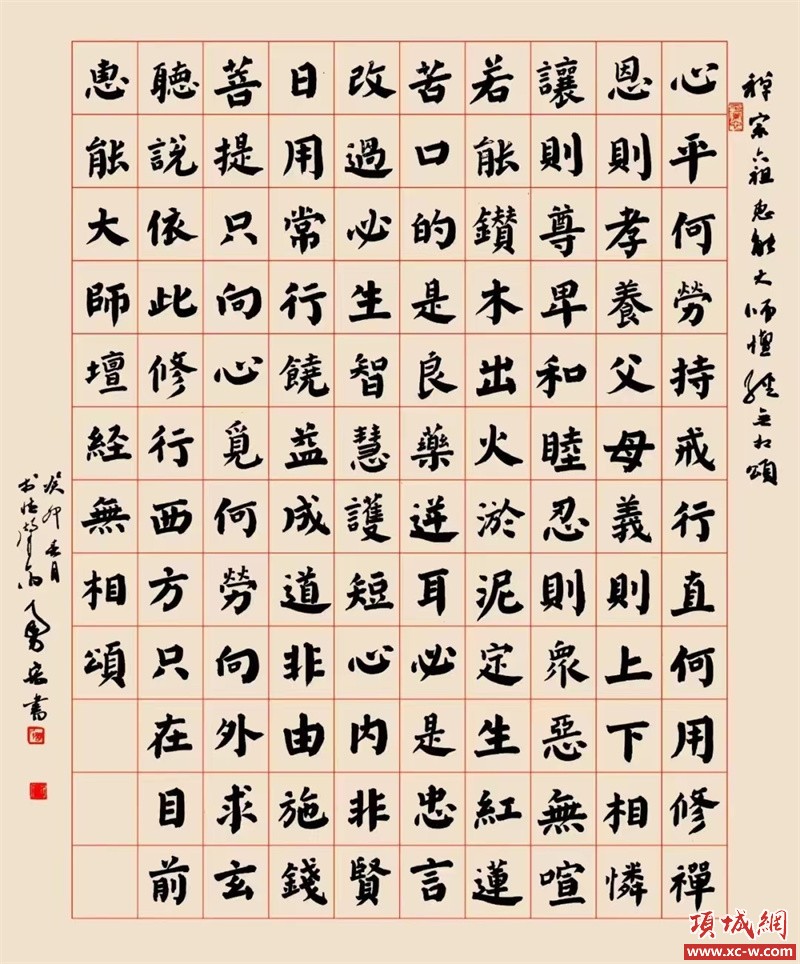 禅宗六祖惠能大师壇經无相頌
心平何勞持戒行直何用修禪
恩則孝養父母義則上下相憐
讓則尊卑和睦忍則眾惡無喧
若能鑽木出火淤泥定生紅蓮
苦口的是良藥逆耳必是忠言
改過必生智慧護短心內非賢
日用常行饒益成道非由施錢
菩提只向心覓何勞向外求玄
聽說依此修行西方只在目前
惠能大師壇經無相頌
癸卯春月
書
項城網
www.xc-w.com